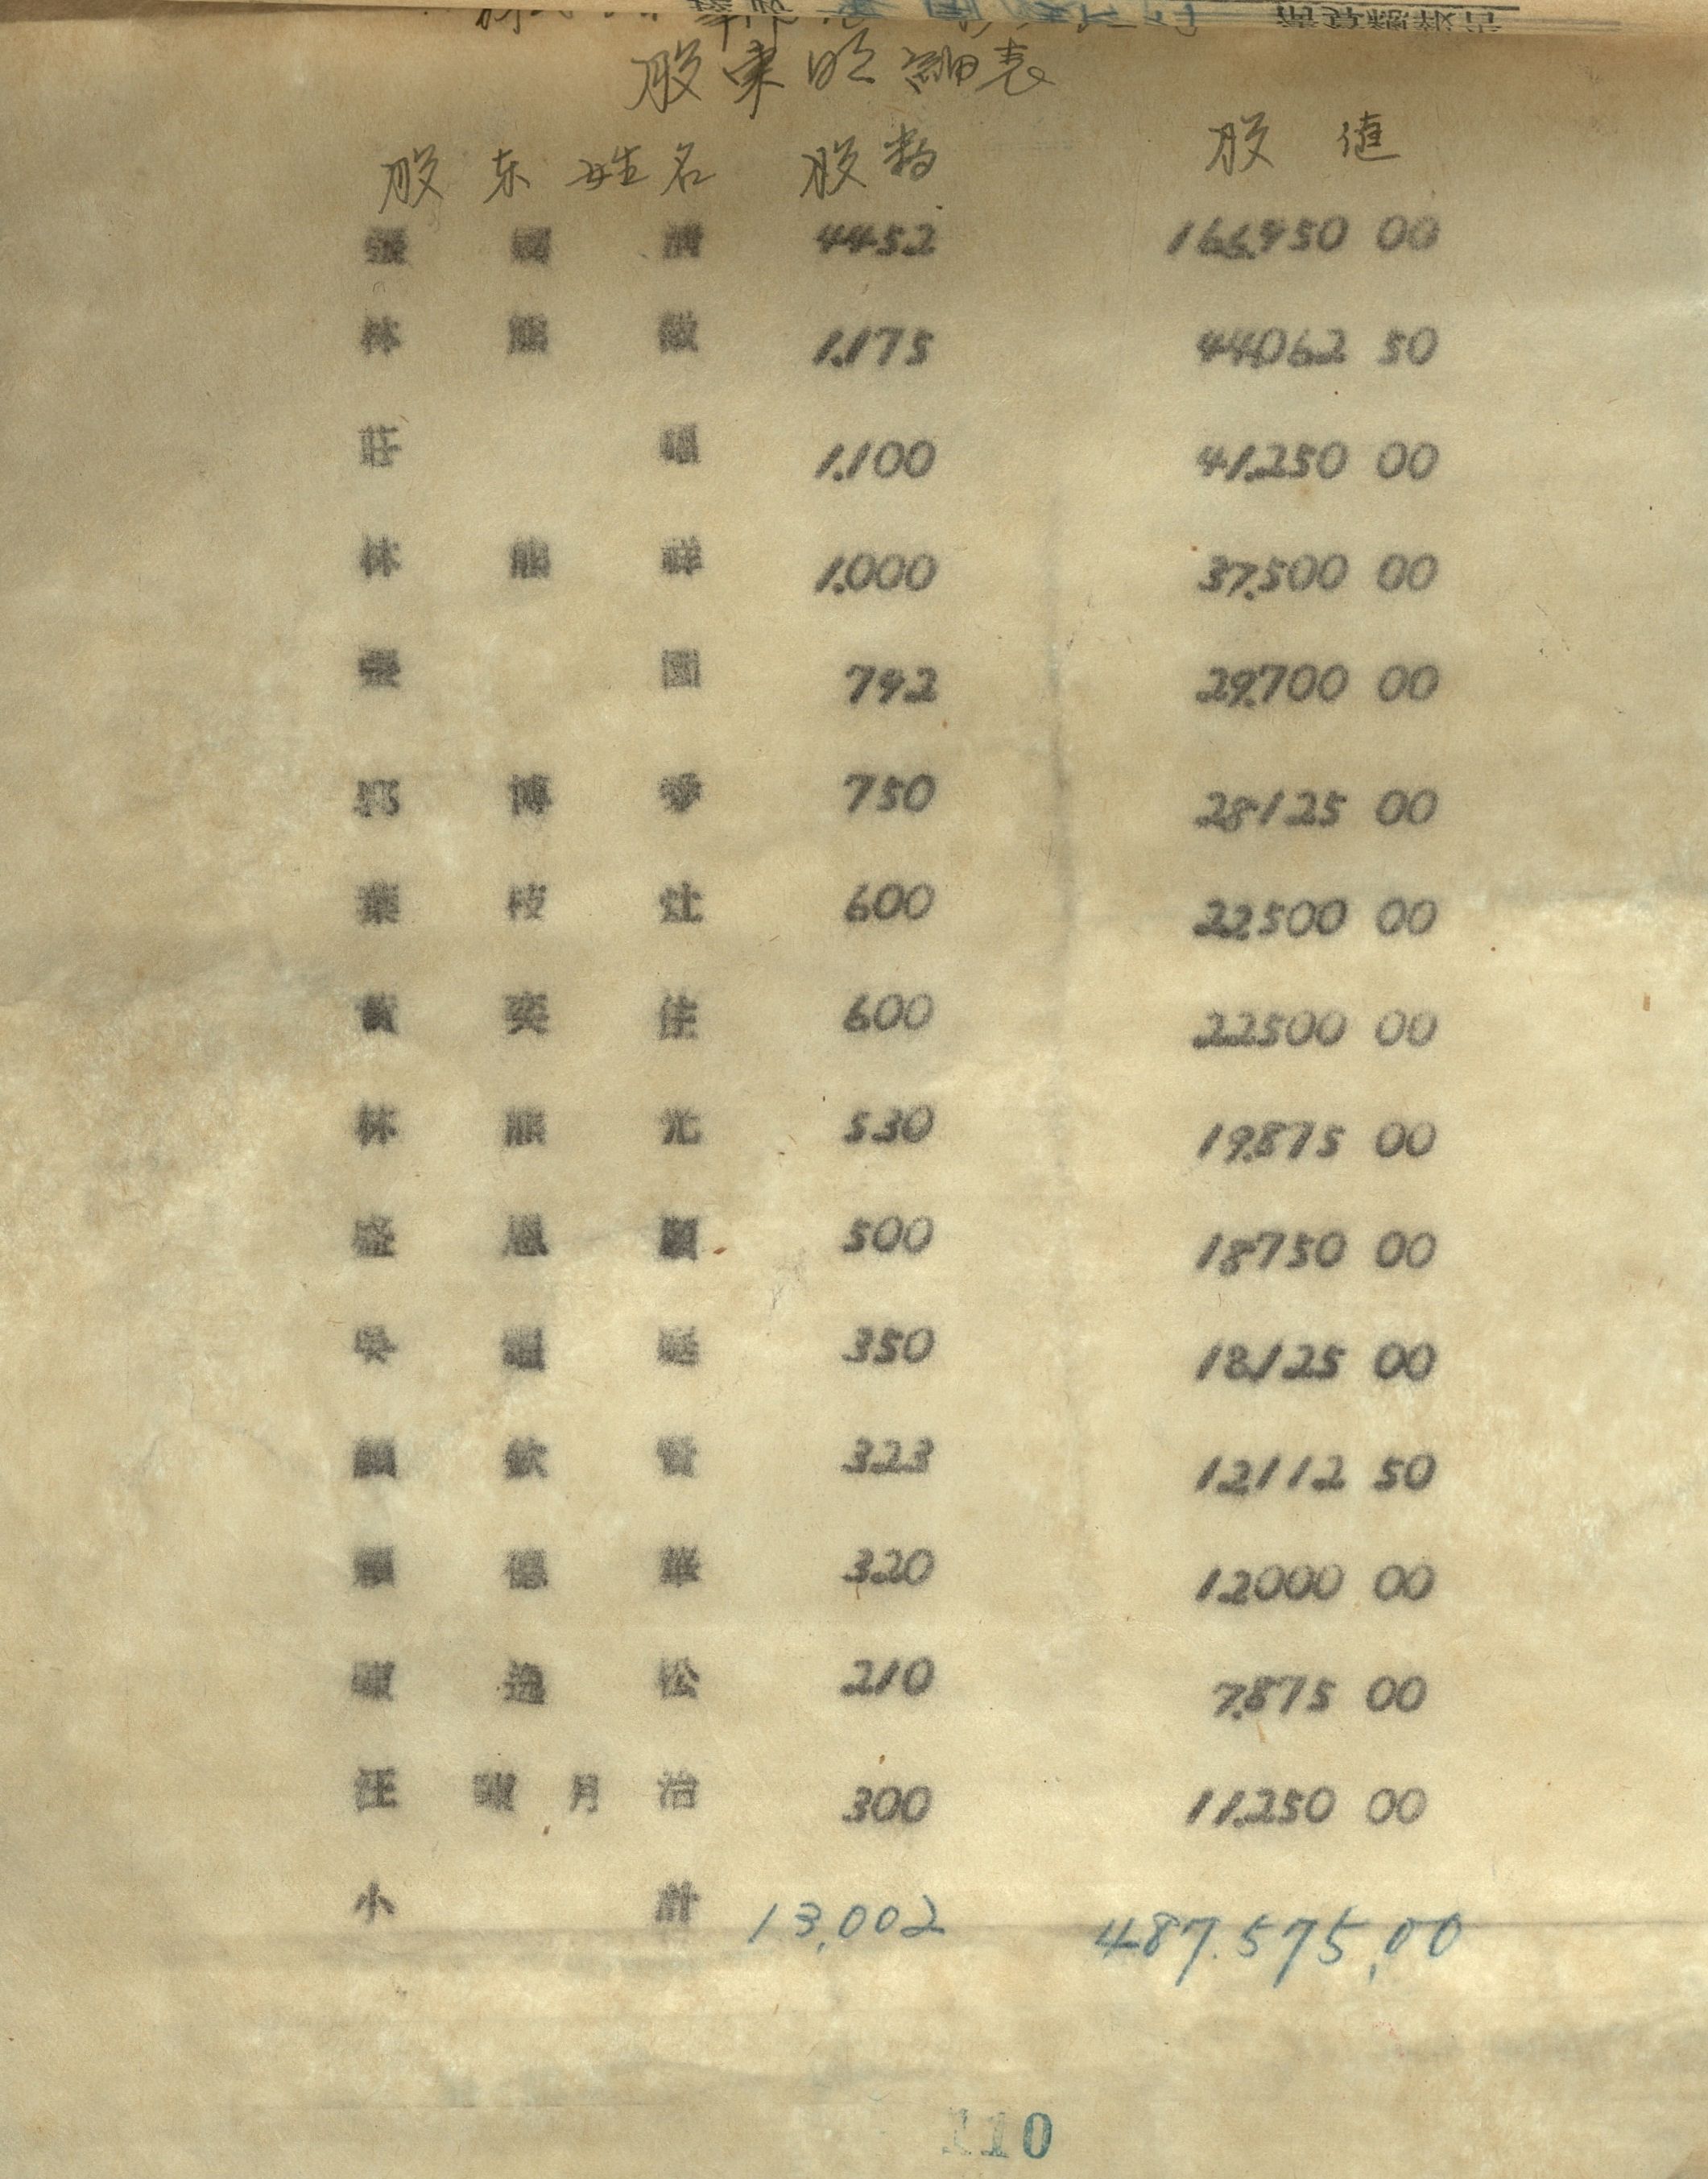 股東明細表
股东姓名 股数 股值
張 清 4452 166,950 00
林熊徵 1.175 44,062 50
莊 1.100 41,250 00
林熊祥 1.000 37,500 00
張園 792 29,700 00
郭博 750 28125 00
葉枝灶 600 22,500 00
黃奕住 600 22500 00
林熊光 530 19,875 00
盛恩頤 500 18750 00
吳 350 18,125 00
顏欽賢 323 12112 50
顏德 320 12000 00
逸松 210 7,875 00
汪 月治 300 11,250 00
小計 13,002 487.575,00
110